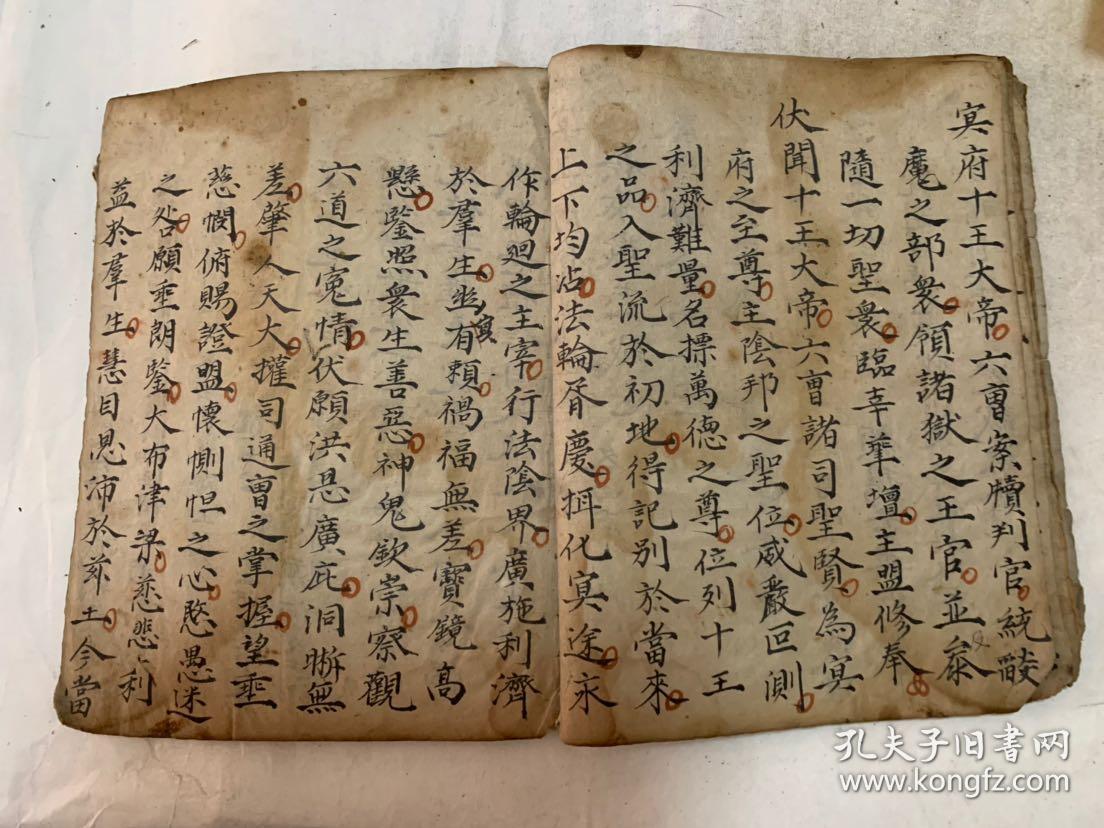 冥府十王大帝六曹案牘判官統
魔之部衆領諸獄之王官並
隨一切聖衆臨幸華壇主盟修奉
伏聞十王大帝六曹諸司聖賢為冥
府之至尊主陰邦之聖位威嚴叵測
利濟難量名摽萬德之尊位列十王
之品入聖流於初地得記別於當來
上下均沾法輪胥慶掛化冥途永
作輪廻之主宰行法陰界廣施利濟
於羣生有賴禍福無差寶鏡高
懸鑒照衆生善惡神鬼欽崇察觀
六道之寃情伏願洪恩廣庇洞晰無
差肇人天大權司通曹之掌握望垂
慈憫俯賜證盟懷惻怛之心愍愚迷
之咎願垂朗鑒大布津梁慈悲利
益於羣生慧目恩沛於茲土今當
孔夫子旧书网
www.kongfz.com